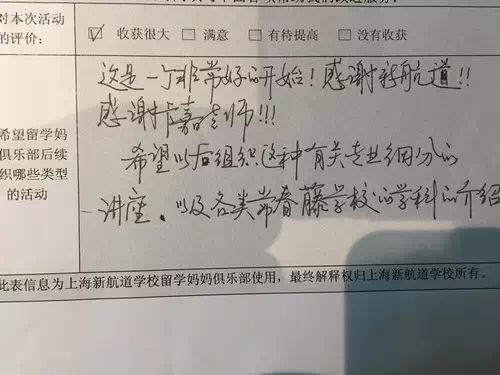 对本次活动
的评价：
☑ 收获很大 □ 满意 □ 有待提高 □ 没有收获
这是一个非常好的开始！感谢新航道！！
感谢卡嘉老师！！！
希望留学妈
俱乐部后续
织哪些类型
的活动
希望以后组织这种有关专业细分的
讲座、以及各类常春藤学校的学科的介绍
此表信息为上海新航道学校留学妈妈俱乐部使用，最终解释权归上海新航道学校所有。